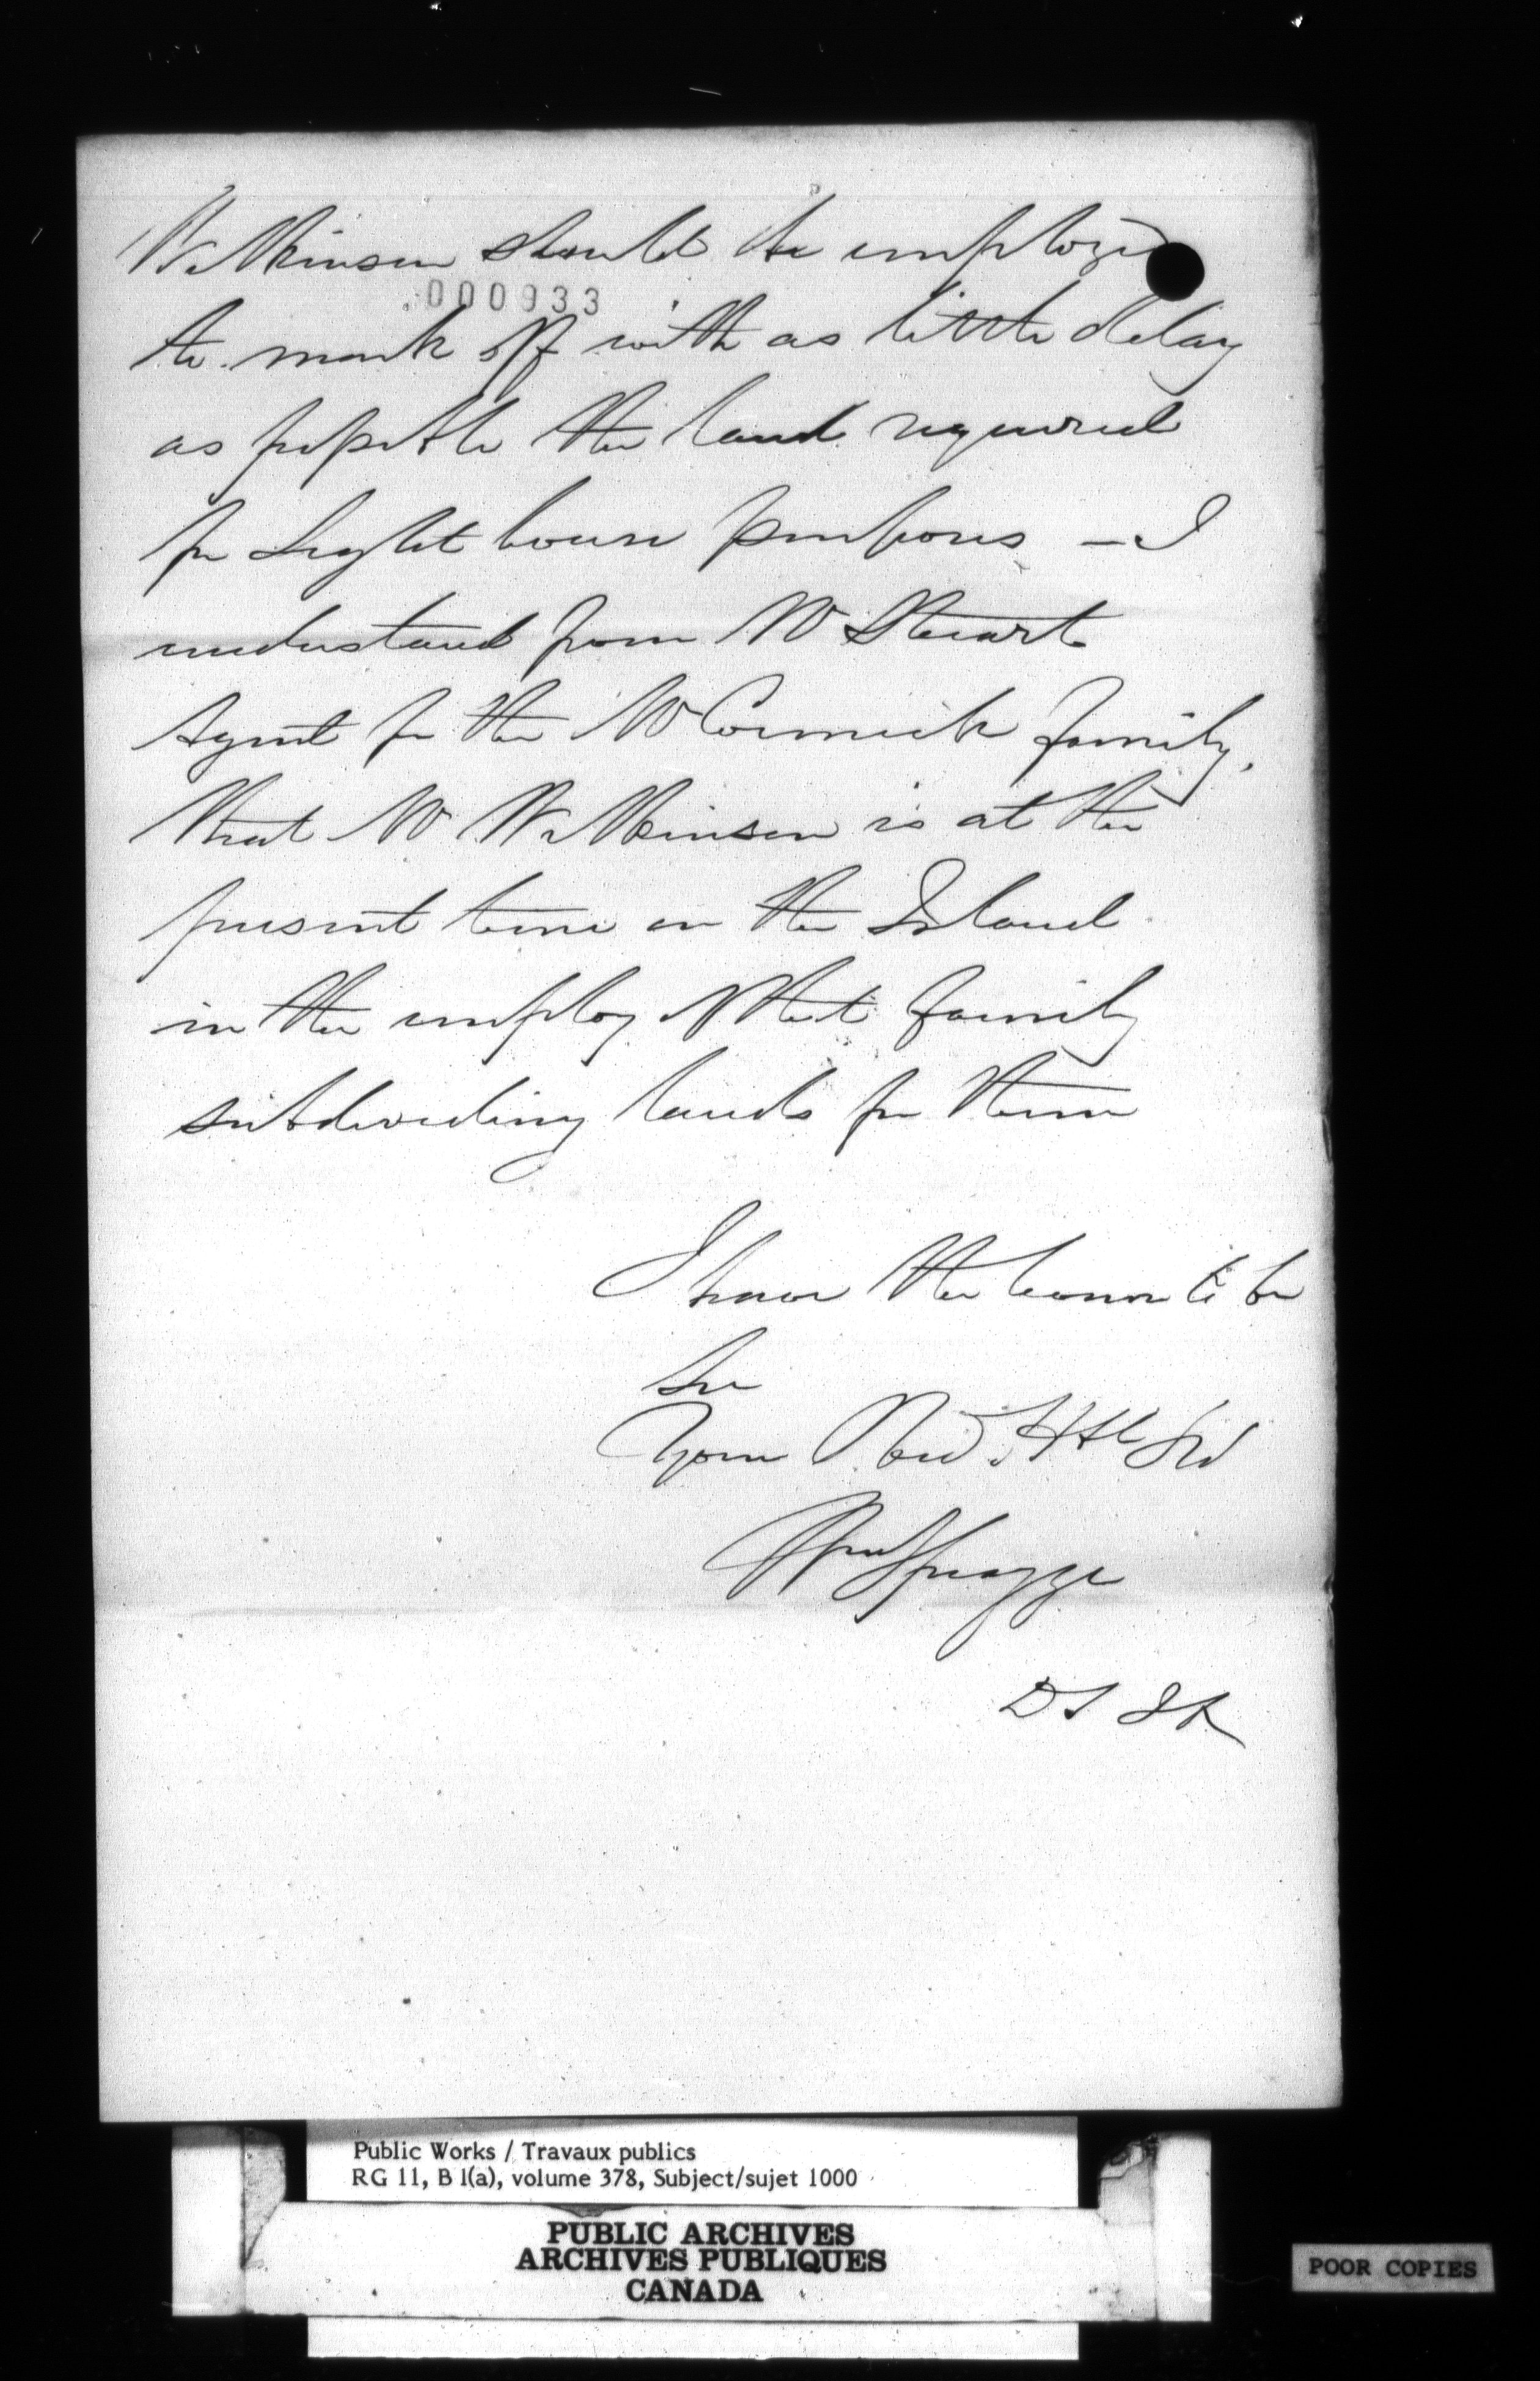 Wilkinson should be employed
000933
to mark off with as little delay
as possible the land required
for Light house purposes – I
understand from Mr Stewart
Agent for the McCormick family,
that Mr Wilkinson is at the
present time on the Island
in the employ of that family
subdividing lands for them
I have the honor to be
Sir
Your Obed. Hble Svt
Wm Spragge
D S I A
Public Works / Travaux publics
RG 11, B 1(a), volume 378, Subject/sujet 1000
PUBLIC ARCHIVES
ARCHIVES PUBLIQUES
CANADA
POOR COPIES